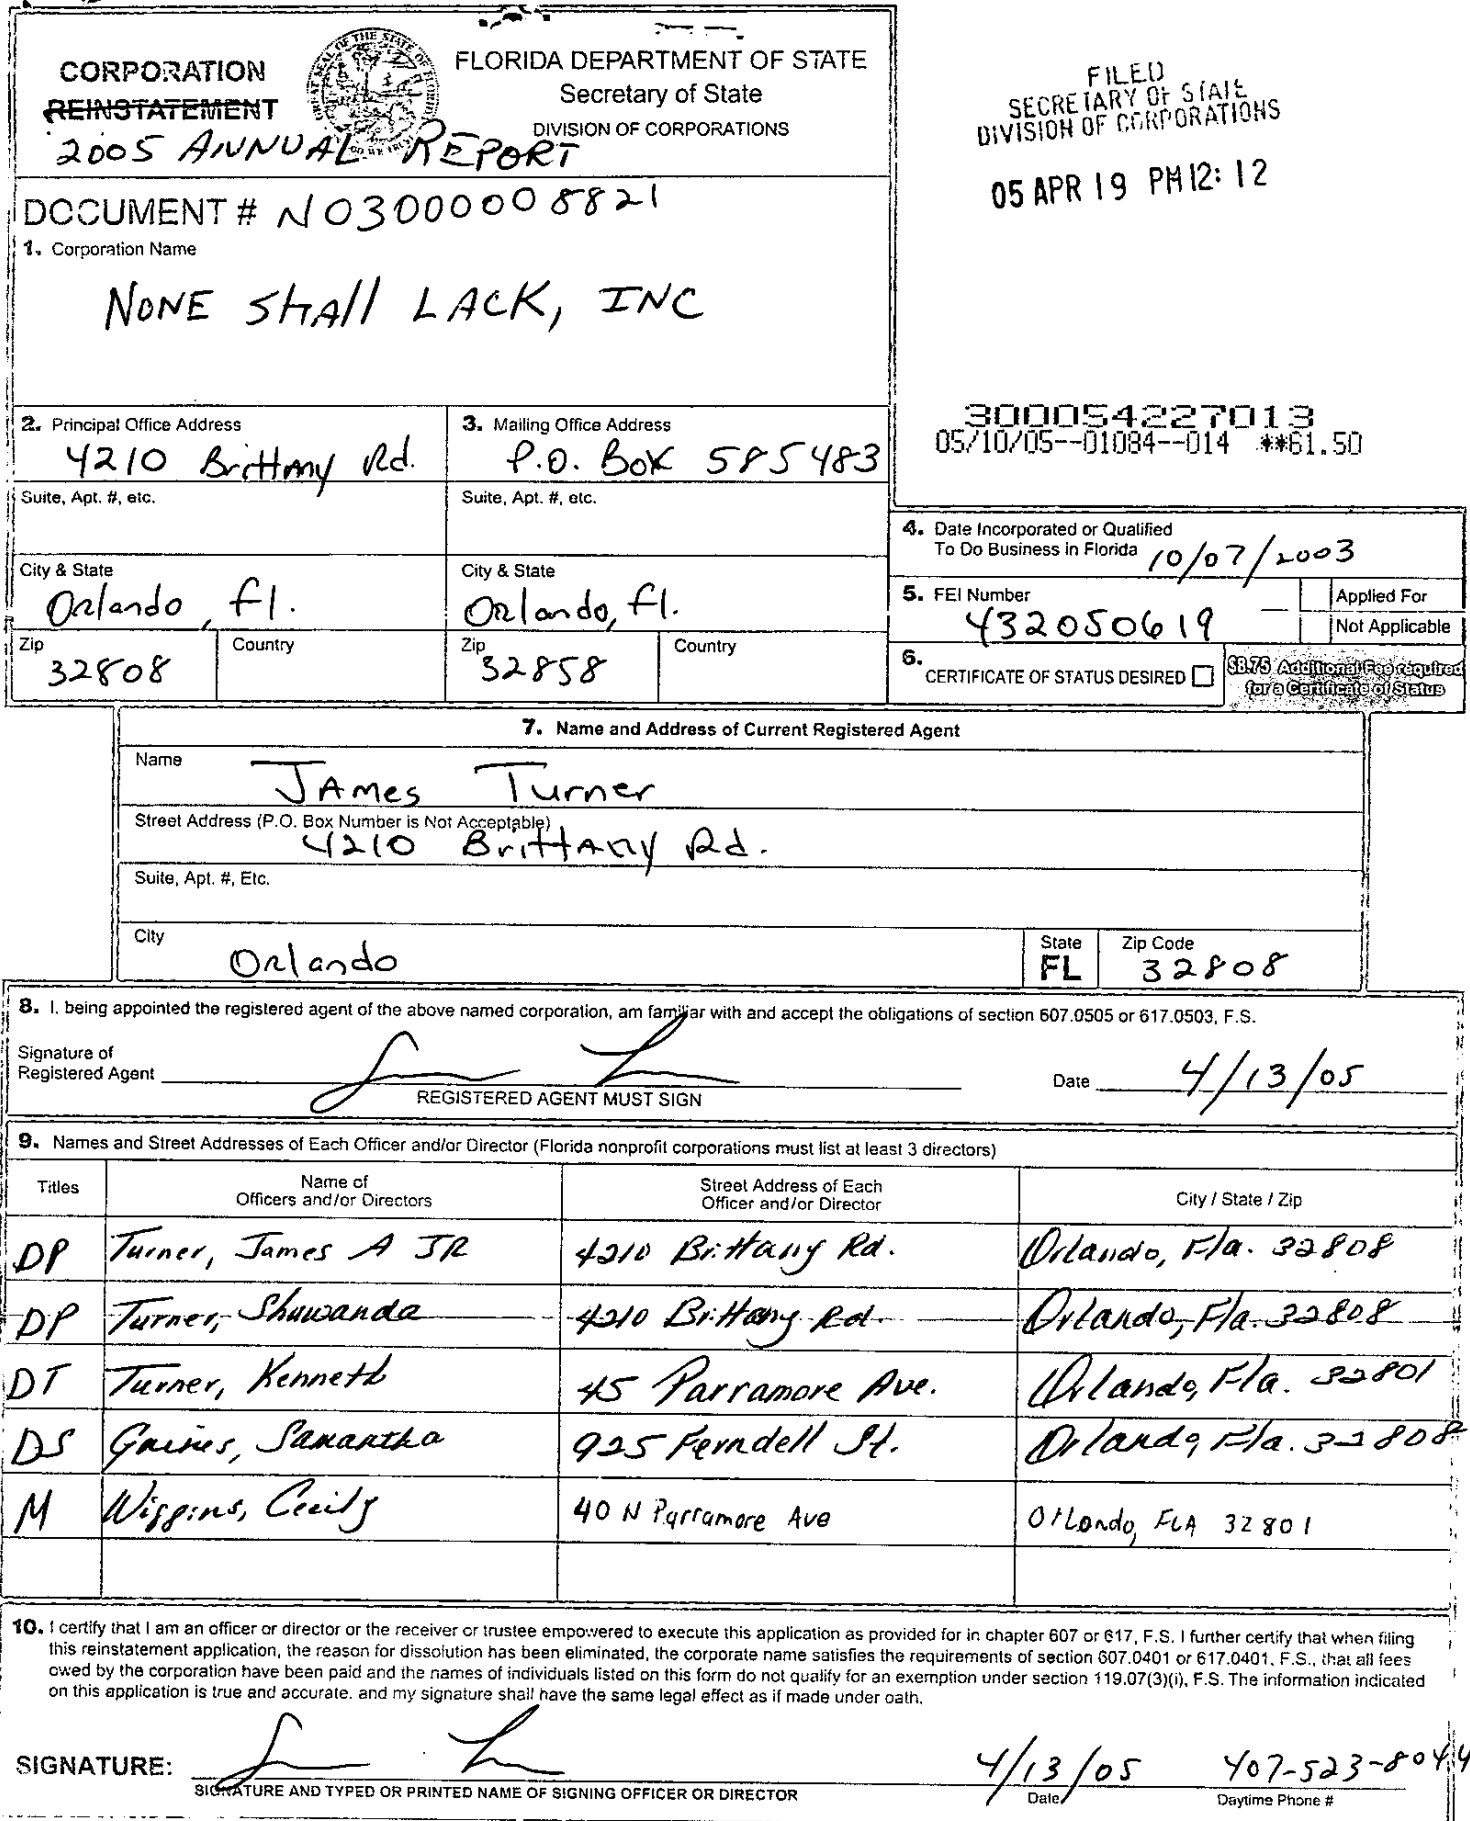 CORPORATION
REINSTATEMENT
2005 ANNUAL REPORT
FLORIDA DEPARTMENT OF STATE
Secretary of State
DIVISION OF CORPORATIONS
FILED
SECRETARY OF STATE
DIVISION OF CORPORATIONS
05 APR 19 PM 12: 12
DOCUMENT # N03000008821
1. Corporation Name
NONE SHALL LACK, INC
300054227013
05/10/05--01084--014 **61.50
2. Principal Office Address
4210 Brittany Rd.
3. Mailing Office Address
P.O. BOX 585483
Suite, Apt. #, etc.
Suite, Apt. #, etc.
City & State
Orlando, Fl.
City & State
Orlando, Fl.
Zip
32808
Country
Zip
32858
Country
4. Date Incorporated or Qualified
To Do Business in Florida 10/07/2003
5. FEI Number
432050619
Applied For
Not Applicable
6.
CERTIFICATE OF STATUS DESIRED
$8.75 Additional Fee required
for a Certificate of Status
7. Name and Address of Current Registered Agent
Name
JAMES Turner
Street Address (P.O. Box Number is Not Acceptable)
4210 BrittANY Rd.
Suite, Apt. #, Etc.
City
Orlando
State
FL
Zip Code
32808
8. I, being appointed the registered agent of the above named corporation, am familiar with and accept the obligations of section 607.0505 or 617.0503, F.S.
Signature of
Registered Agent
REGISTERED AGENT MUST SIGN
Date 4/13/05
9. Names and Street Addresses of Each Officer and/or Director (Florida nonprofit corporations must list at least 3 directors)
Titles
Name of
Officers and/or Directors
Street Address of Each
Officer and/or Director
City / State / Zip
DP Turner, James A JR 4210 Brittany Rd. Orlando, Fla. 32808
DP Turner, Shuwanda 4210 Brittany Rd. Orlando, Fla. 32808
DT Turner, Kenneth 45 Parramore Ave. Orlando, Fla. 32801
DS Gaines, Samantha 925 Ferndell St. Orlando, Fla. 32808
M Wiggins, Cecily 40 N Parramore Ave Orlando, FLA 32801
10. I certify that I am an officer or director or the receiver or trustee empowered to execute this application as provided for in chapter 607 or 617, F.S. I further certify that when filing
this reinstatement application, the reason for dissolution has been eliminated, the corporate name satisfies the requirements of section 607.0401 or 617.0401, F.S., that all fees
owed by the corporation have been paid and the names of individuals listed on this form do not qualify for an exemption under section 119.07(3)(i), F.S. The information indicated
on this application is true and accurate, and my signature shall have the same legal effect as if made under oath.
SIGNATURE:
SIGNATURE AND TYPED OR PRINTED NAME OF SIGNING OFFICER OR DIRECTOR
4/13/05
Date
407-523-8044
Daytime Phone #